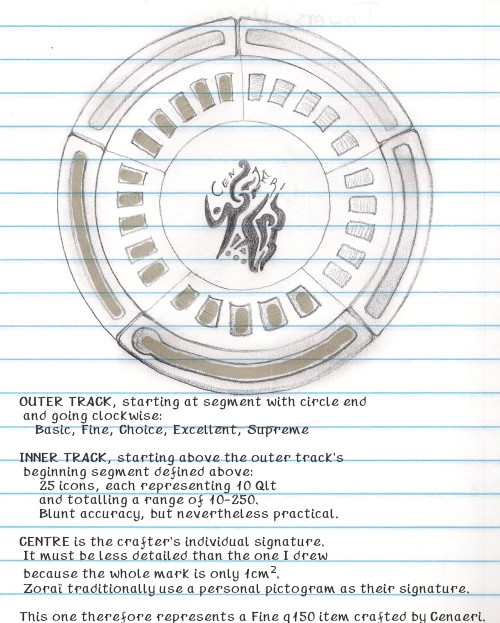 CENAERI
OUTER TRACK, starting at segment with circle end
and going clockwise:
Basic, Fine, Choice, Excellent, Supreme
INNER TRACK, starting above the outer track's
beginning segment defined above:
25 icons, each representing 10 Qlt
and totalling a range of 10-250.
Blunt accuracy, but nevertheless practical.
CENTRE is the crafter's individual signature.
It must be less detailed than the one I drew
because the whole mark is only 1cm².
Zoraï traditionally use a personal pictogram as their signature.
This one therefore represents a Fine q150 item crafted by Cenaeri.